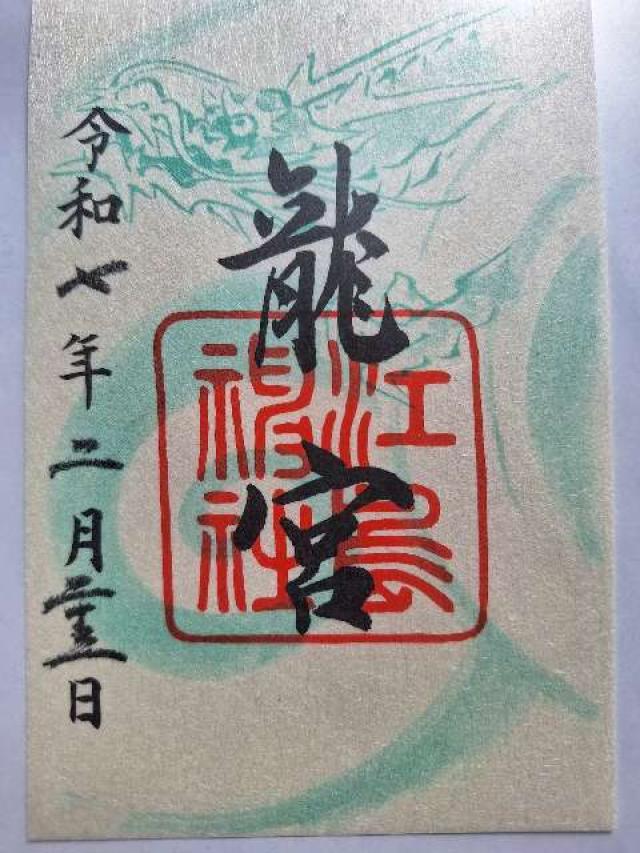 龍宮
江島神社
令和七年二月日